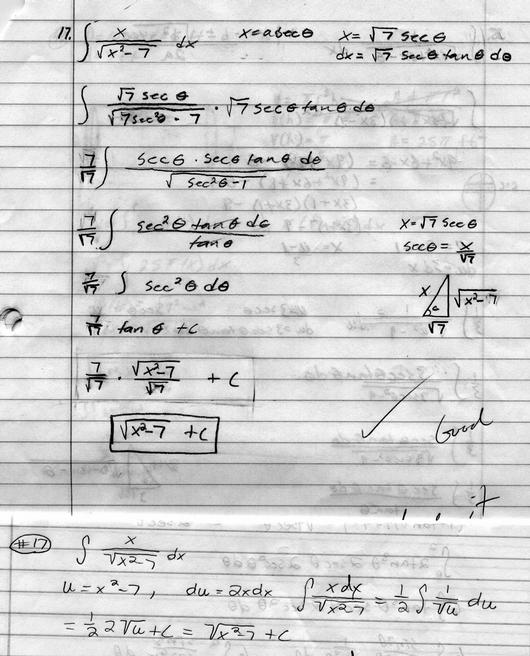 17. ∫ x/√(x²-7) dx   x=a secθ   x=√7 secθ
dx=√7 secθ tanθ dθ
∫ √7 secθ/√(7sec²θ - 7) · √7 secθ tanθ dθ
7/√7 ∫ secθ · secθ tanθ dθ/√(sec²θ-1)
7/√7 ∫ sec²θ tanθ dθ/tanθ   x=√7 secθ
secθ = x/√7
7/√7 ∫ sec²θ dθ   x   √(x²-7)
√7
7/√7 tanθ +C
7/√7 · √(x²-7)/√7 + C
√(x²-7) +C   Good
#17 ∫ x/√(x²-7) dx
u=x²-7, du=2xdx   ∫ xdx/√(x²-7) = 1/2 ∫ 1/√u du
= 1/2 2√u+C = √(x²-7) +C